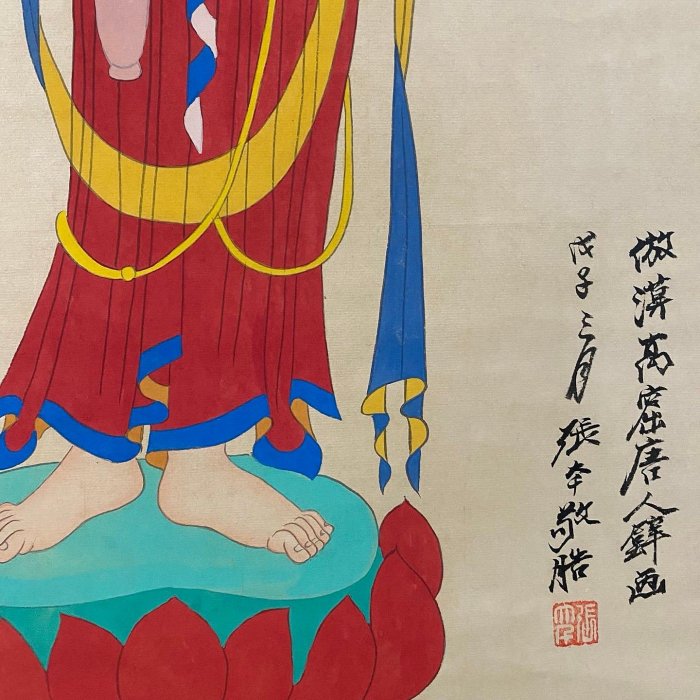 倣漠高窟唐人壁画
戊子三月張本敬